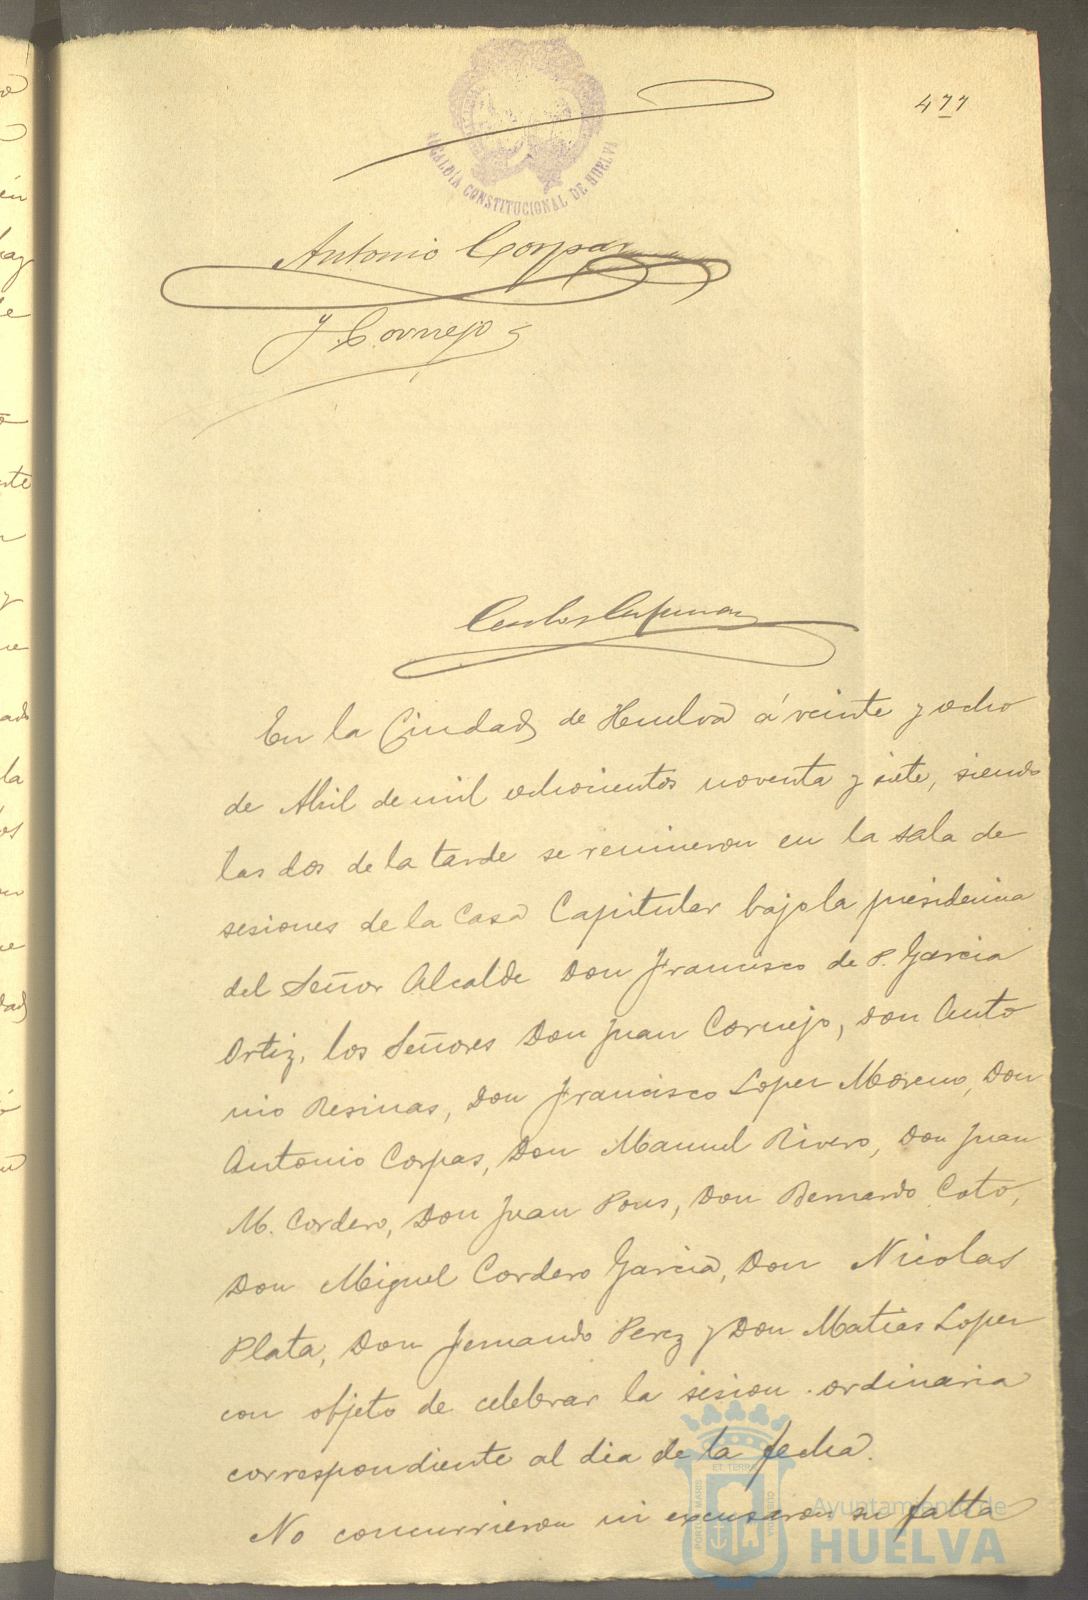 477
ALCALDÍA CONSTITUCIONAL DE HUELVA
Antonio Corpas
y Cornejo
En la Ciudad de Huelva á veinte y ocho
de Abril de mil ochocientos noventa y siete, siendo
las dos de la tarde se reunieron en la sala de
sesiones de la Casa Capitular bajo la presidencia
del Señor Alcalde Don Francisco de P. Garcia
Ortiz, los Señores Don Juan Cornejo, Don Anto
nio Resinas, Don Francisco Lopez Moreno, Don
Antonio Corpas, Don Manuel Rivero, Don Juan
M. Cordero, Don Juan Pons, Don Bernardo Coto,
Don Miguel Cordero Garcia, Don Nicolas
Plata, Don Fernando Perez y Don Matias Lopez
con objeto de celebrar la sesion ordinaria
correspondiente al dia de la fecha.
No concurrieron ni excusaron su falta
Ayuntamiento de
HUELVA